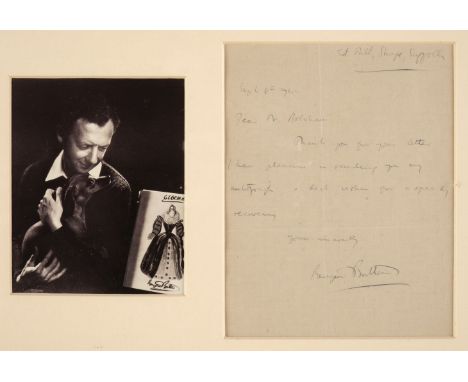 Old Mill, Snape, Suffolk
Dear Mr
Thank you for your letter
I have pleasure in sending you my
autograph & best wishes for a speedy
recovery
Yours sincerely
Benjamin Britten
GLORIANA
Benjamin Britten